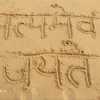 सत्यमेव
जयते